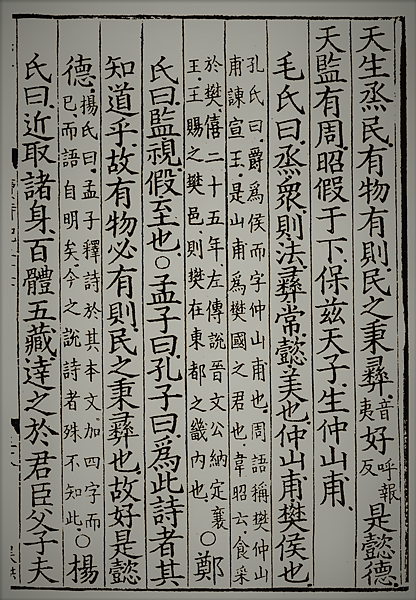 天生烝民有物有則民之秉彝音夷好呼報反是懿德
天監有周昭假于下保茲天子生仲山甫
毛氏曰烝衆則法彝常懿美也仲山甫樊侯也
孔氏曰爵為侯而字仲山甫也周語稱樊仲山
甫諫宣王是山甫為樊國之君也韋昭云食采
於樊僖二十五年左傳說晉文公納定襄
王王賜之樊邑則樊在東都之畿內也○鄭
氏曰監視假至也○孟子曰孔子曰為此詩者其
知道乎故有物必有則民之秉彝也故好是懿
德楊氏曰孟子釋詩於其本文加四字而
已而語自明矣今之說詩者殊不知此○楊
氏曰近取諸身百體五藏達之於君臣父子夫